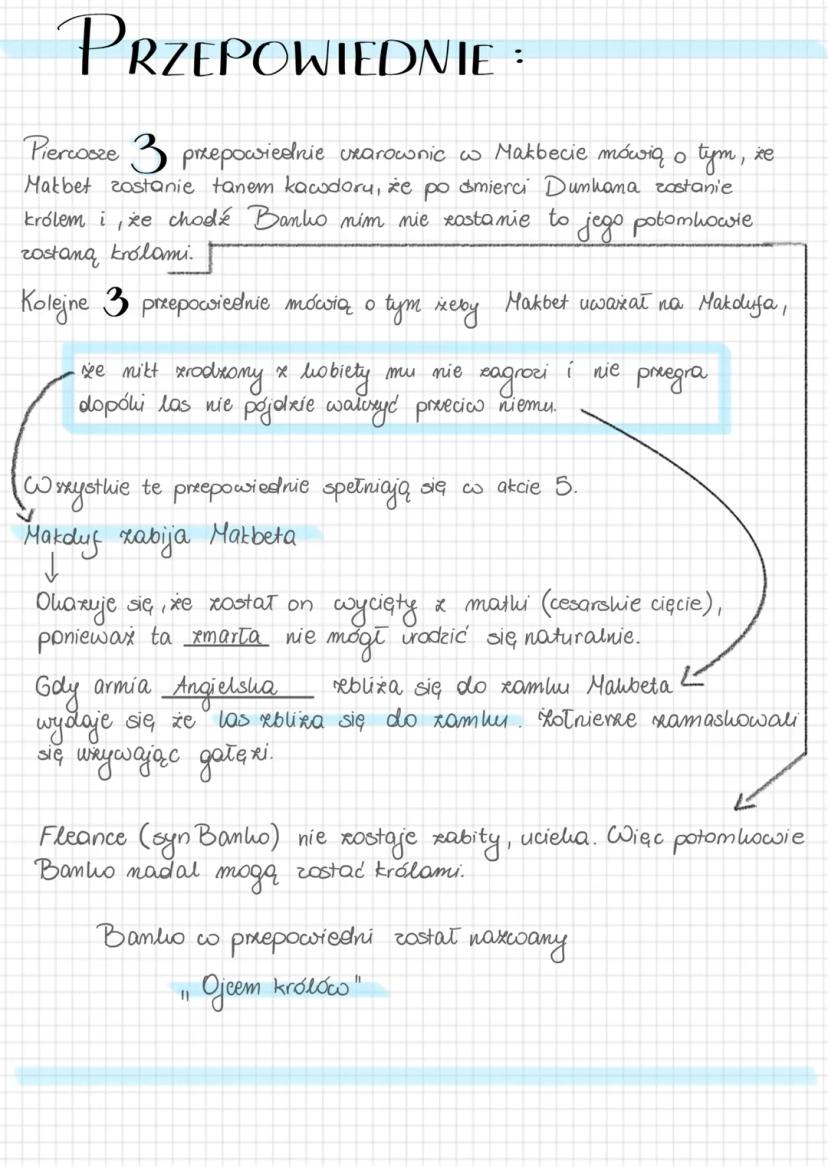 PRZEPOWIEDNIE :
Pierwsze 3 przepowiednie czarownic w Makbecie mówią o tym, że
Makbet zostanie tanem kawdoru, że po śmierci Dunkana zostanie
królem i , że chodź Banko nim nie zostanie to jego potomkowie
zostaną królami.
Kolejne 3 przepowiednie mówią o tym żeby Makbet uważał na Makdufa,
że nikt zrodzony z kobiety mu nie zagrozi i nie przegra
dopóki las nie pójdzie walczyć przeciw niemu.
Wszystkie te przepowiednie spełniają się w akcie 5.
Makduf zabija Makbeta
Okazuje się, że został on wycięty z matki (cesarskie cięcie),
ponieważ ta zmarła nie mógł urodzić się naturalnie.
Gdy armia Angielska zbliża się do zamku Makbeta
wydaje się że las zbliża się do zamku. Żołnierze zamaskowali
się używając gałęzi.
Fleance (syn Banko) nie zostaje zabity, ucieka. Więc potomkowie
Banko nadal mogą zostać królami.
Banko w przepowiedni został nazwany
„ Ojcem królów"